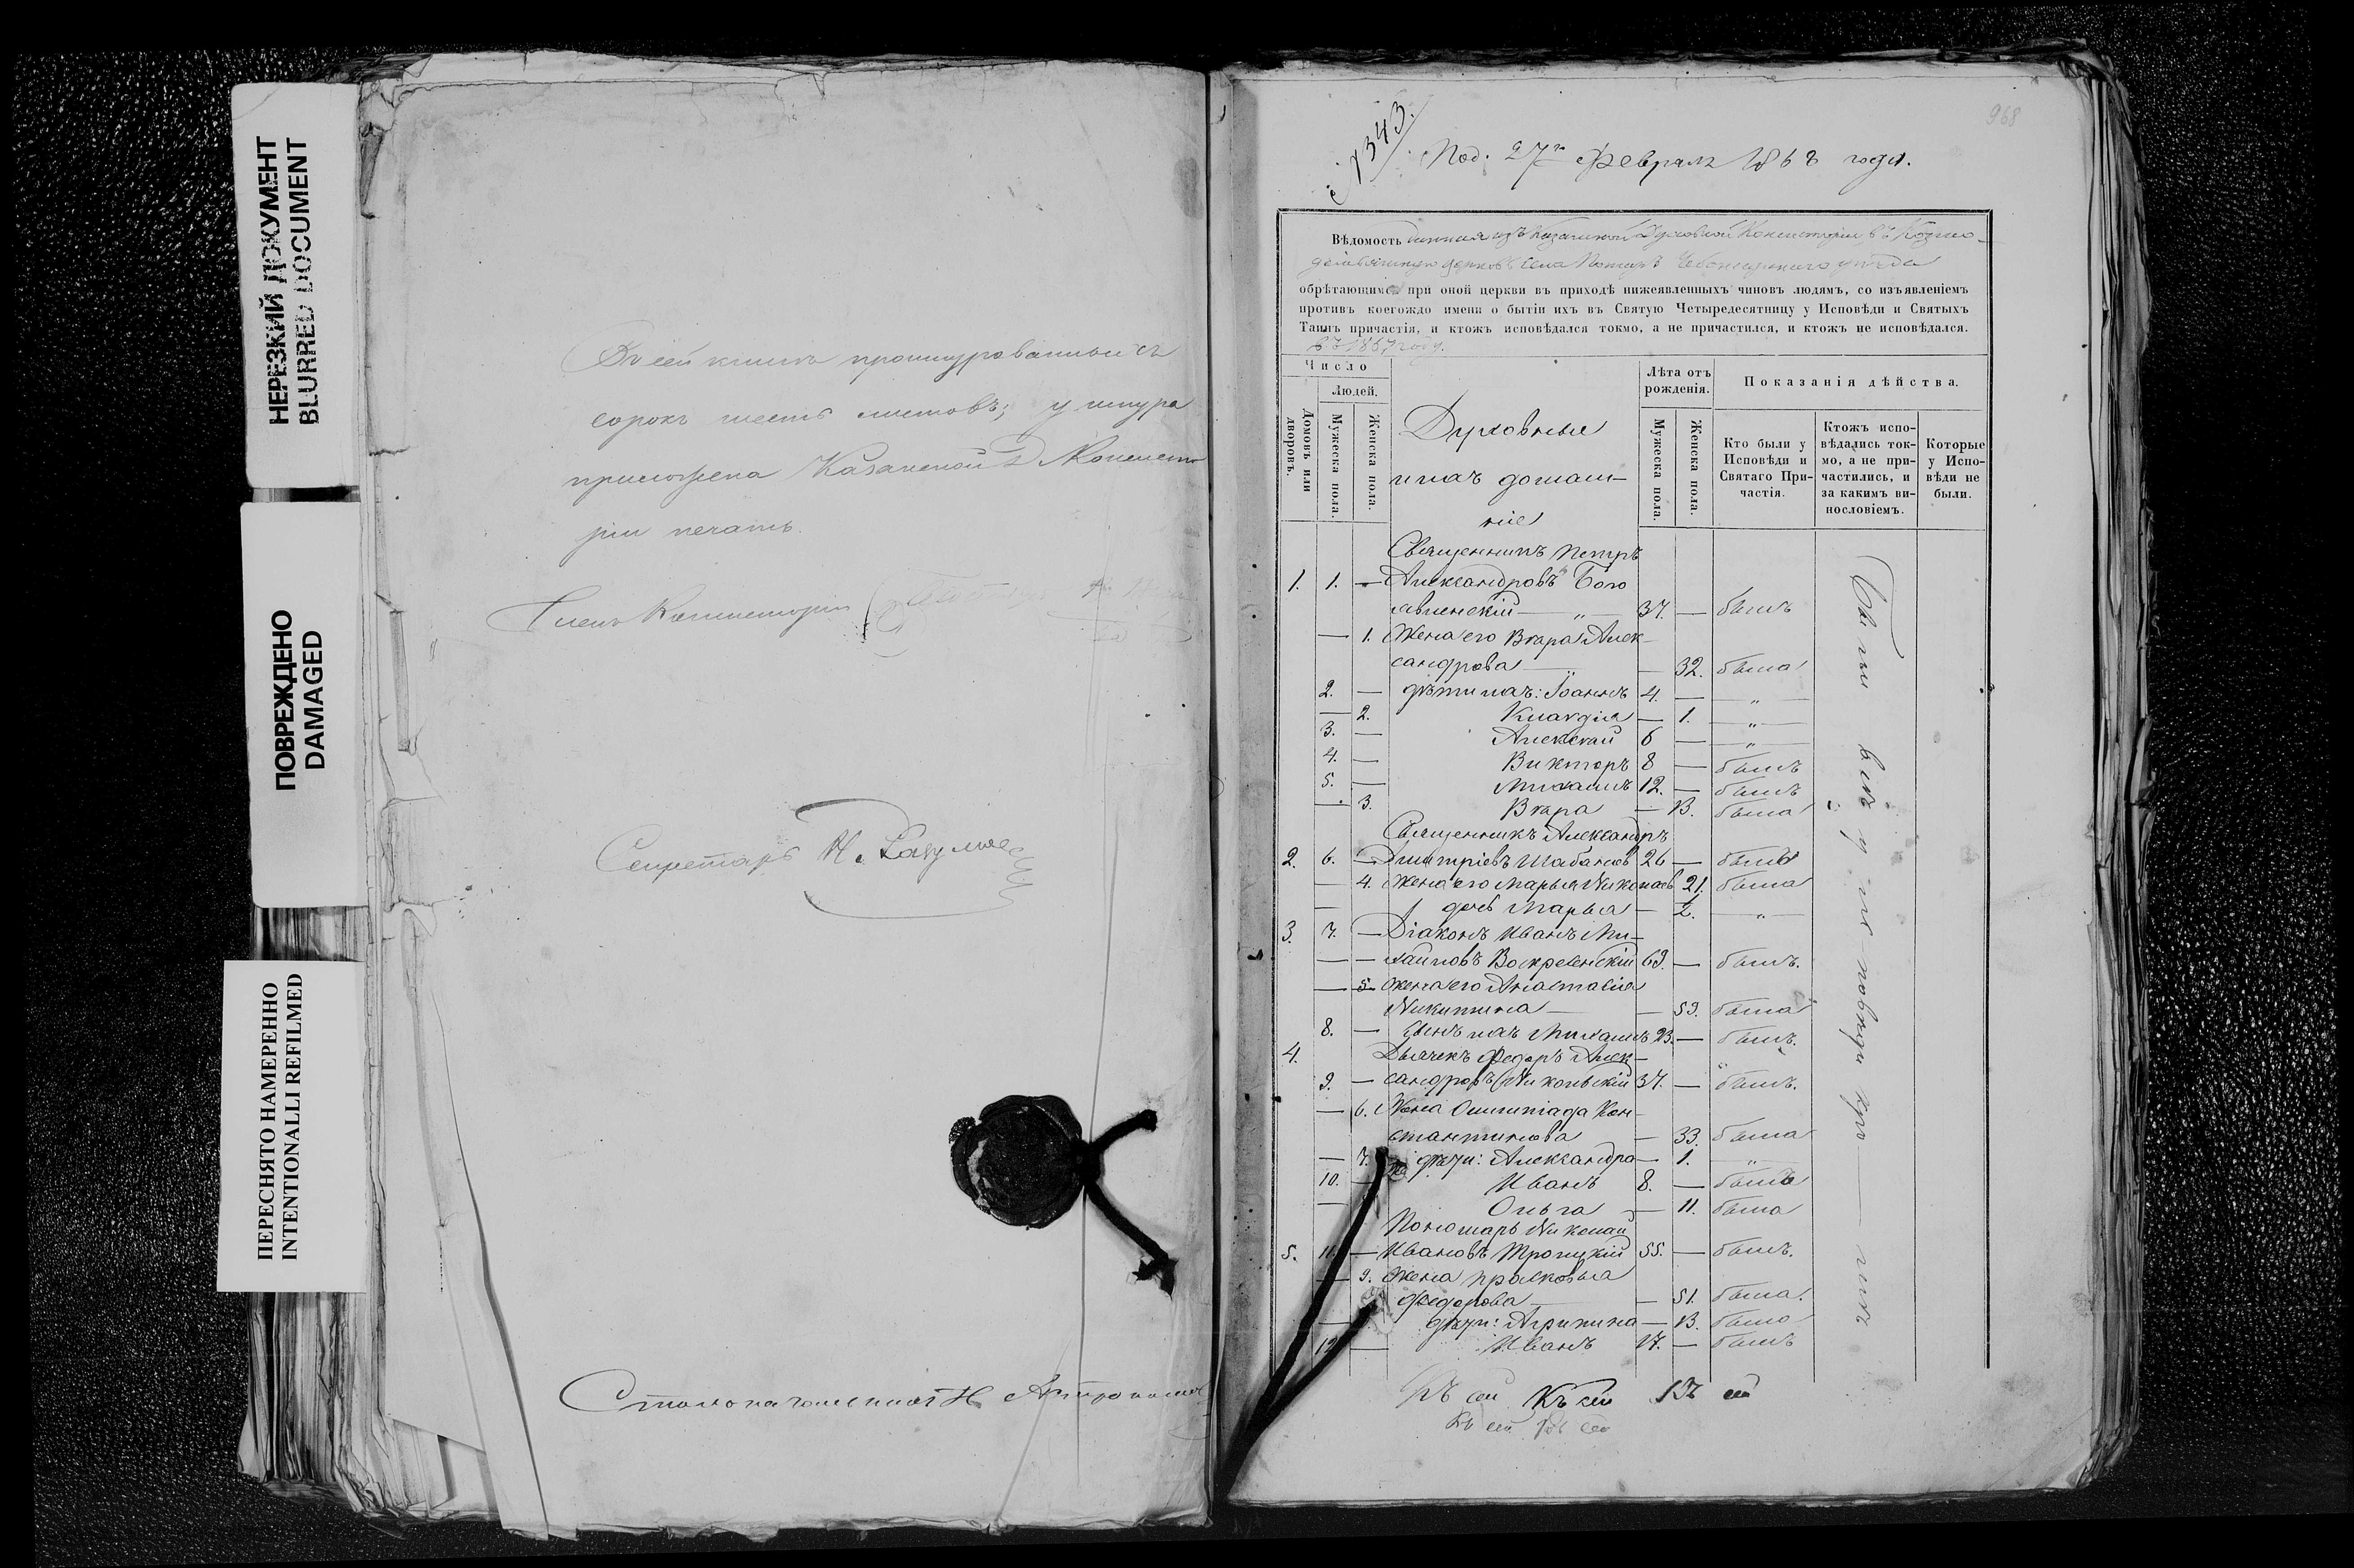 НЕРЕЗКИЙ ДОКУМЕНТ
BLURRED DOCUMENT
ПОВРЕЖДЕНО
DAMAGED
ПЕРЕСНЯТО НАМЕРЕННО
INTENTIONALLI REFILMED
В сей книге прошнурованныхъ
сорокъ шесть листовъ; у шнура
приложена Казанской Д Консисто
ріи печать.
Членъ Консисторіи
Секретарь Н. Разумов
Столоначальникъ Н.
968
№ 1343.
Под. 27го февраля 1868 года.
Вѣдомость данная изъ Казанской Духовной Консисторіи въ Козмо-
деміянскую церковь села Чебоксарскаго уѣзда
обрѣтающимся при оной церкви въ приходѣ нижеявленныхъ чиновъ людямъ, со изъявленіемъ
противъ коегождо имени о бытіи ихъ въ Святую Четыредесятницу у Исповѣди и Святыхъ
Таинъ причастія, и ктожъ исповѣдался токмо, а не причастился, и ктожъ не исповѣдался.
въ 1867 году.
Число
Людей.
Домовъ или дворовъ.
Мужеска пола.
Женска пола.
Духовные
и ихъ домаш-
ніе
Лѣта отъ рожденія.
Мужеска пола.
Женска пола.
Показанія дѣйства.
Кто были у Исповѣди и Святаго При-частія.
Ктожъ испо-вѣдались ток-мо, а не при-частились, и за какимъ ви-нословіемъ.
Которые у Испо-вѣди не были.
Священникъ Петръ
1. 1. — Александровъ Бого
явленскій — „ — 37. — былъ
— 1. Жена его Вѣра Алек-
сандрова — „ — 32. была
2. — дѣти ихъ: Іоаннъ 4. — „
— 2. Клавдія — 1. — „
3. — Алексѣй 6 — „
4. — Викторъ 8 — былъ
5. — Михаилъ 12. — былъ
— 3. Вѣра — 13. была
Священникъ Александръ
2. 6. — Дмитріевъ Шабалиев 26 — былъ
— 4. Жена его Марья Николаев 21. была
— дочь Марья — 2. — „
3. 7. — Діаконъ Иванъ Ми-
— — хаиловъ Воскресенскій 63. — былъ.
— 5 Жена его Анастасія
Никитина — — 59. была
8. — Сынъ ихъ Михаилъ 23. — былъ.
4. Дьячекъ Федоръ Алек-
9. — сандровъ Никольскій 37. — былъ.
— 6. Жена Олимпіада Кон-
стантинова — 33. была
— 7. дѣти: Александра — 1. — „
10. — Иванъ 8. — былъ
— Ольга — 11. была
Пономарь Николай
5. 11. — Ивановъ Троицкій 55. — былъ.
— 9. Жена Прасковья
Федорова — — 51. была.
— дѣти: Агрипина — 13. была
12 — Иванъ 17. — былъ
Къ сей Къ сей Къ сей
Къ сей Къ сей